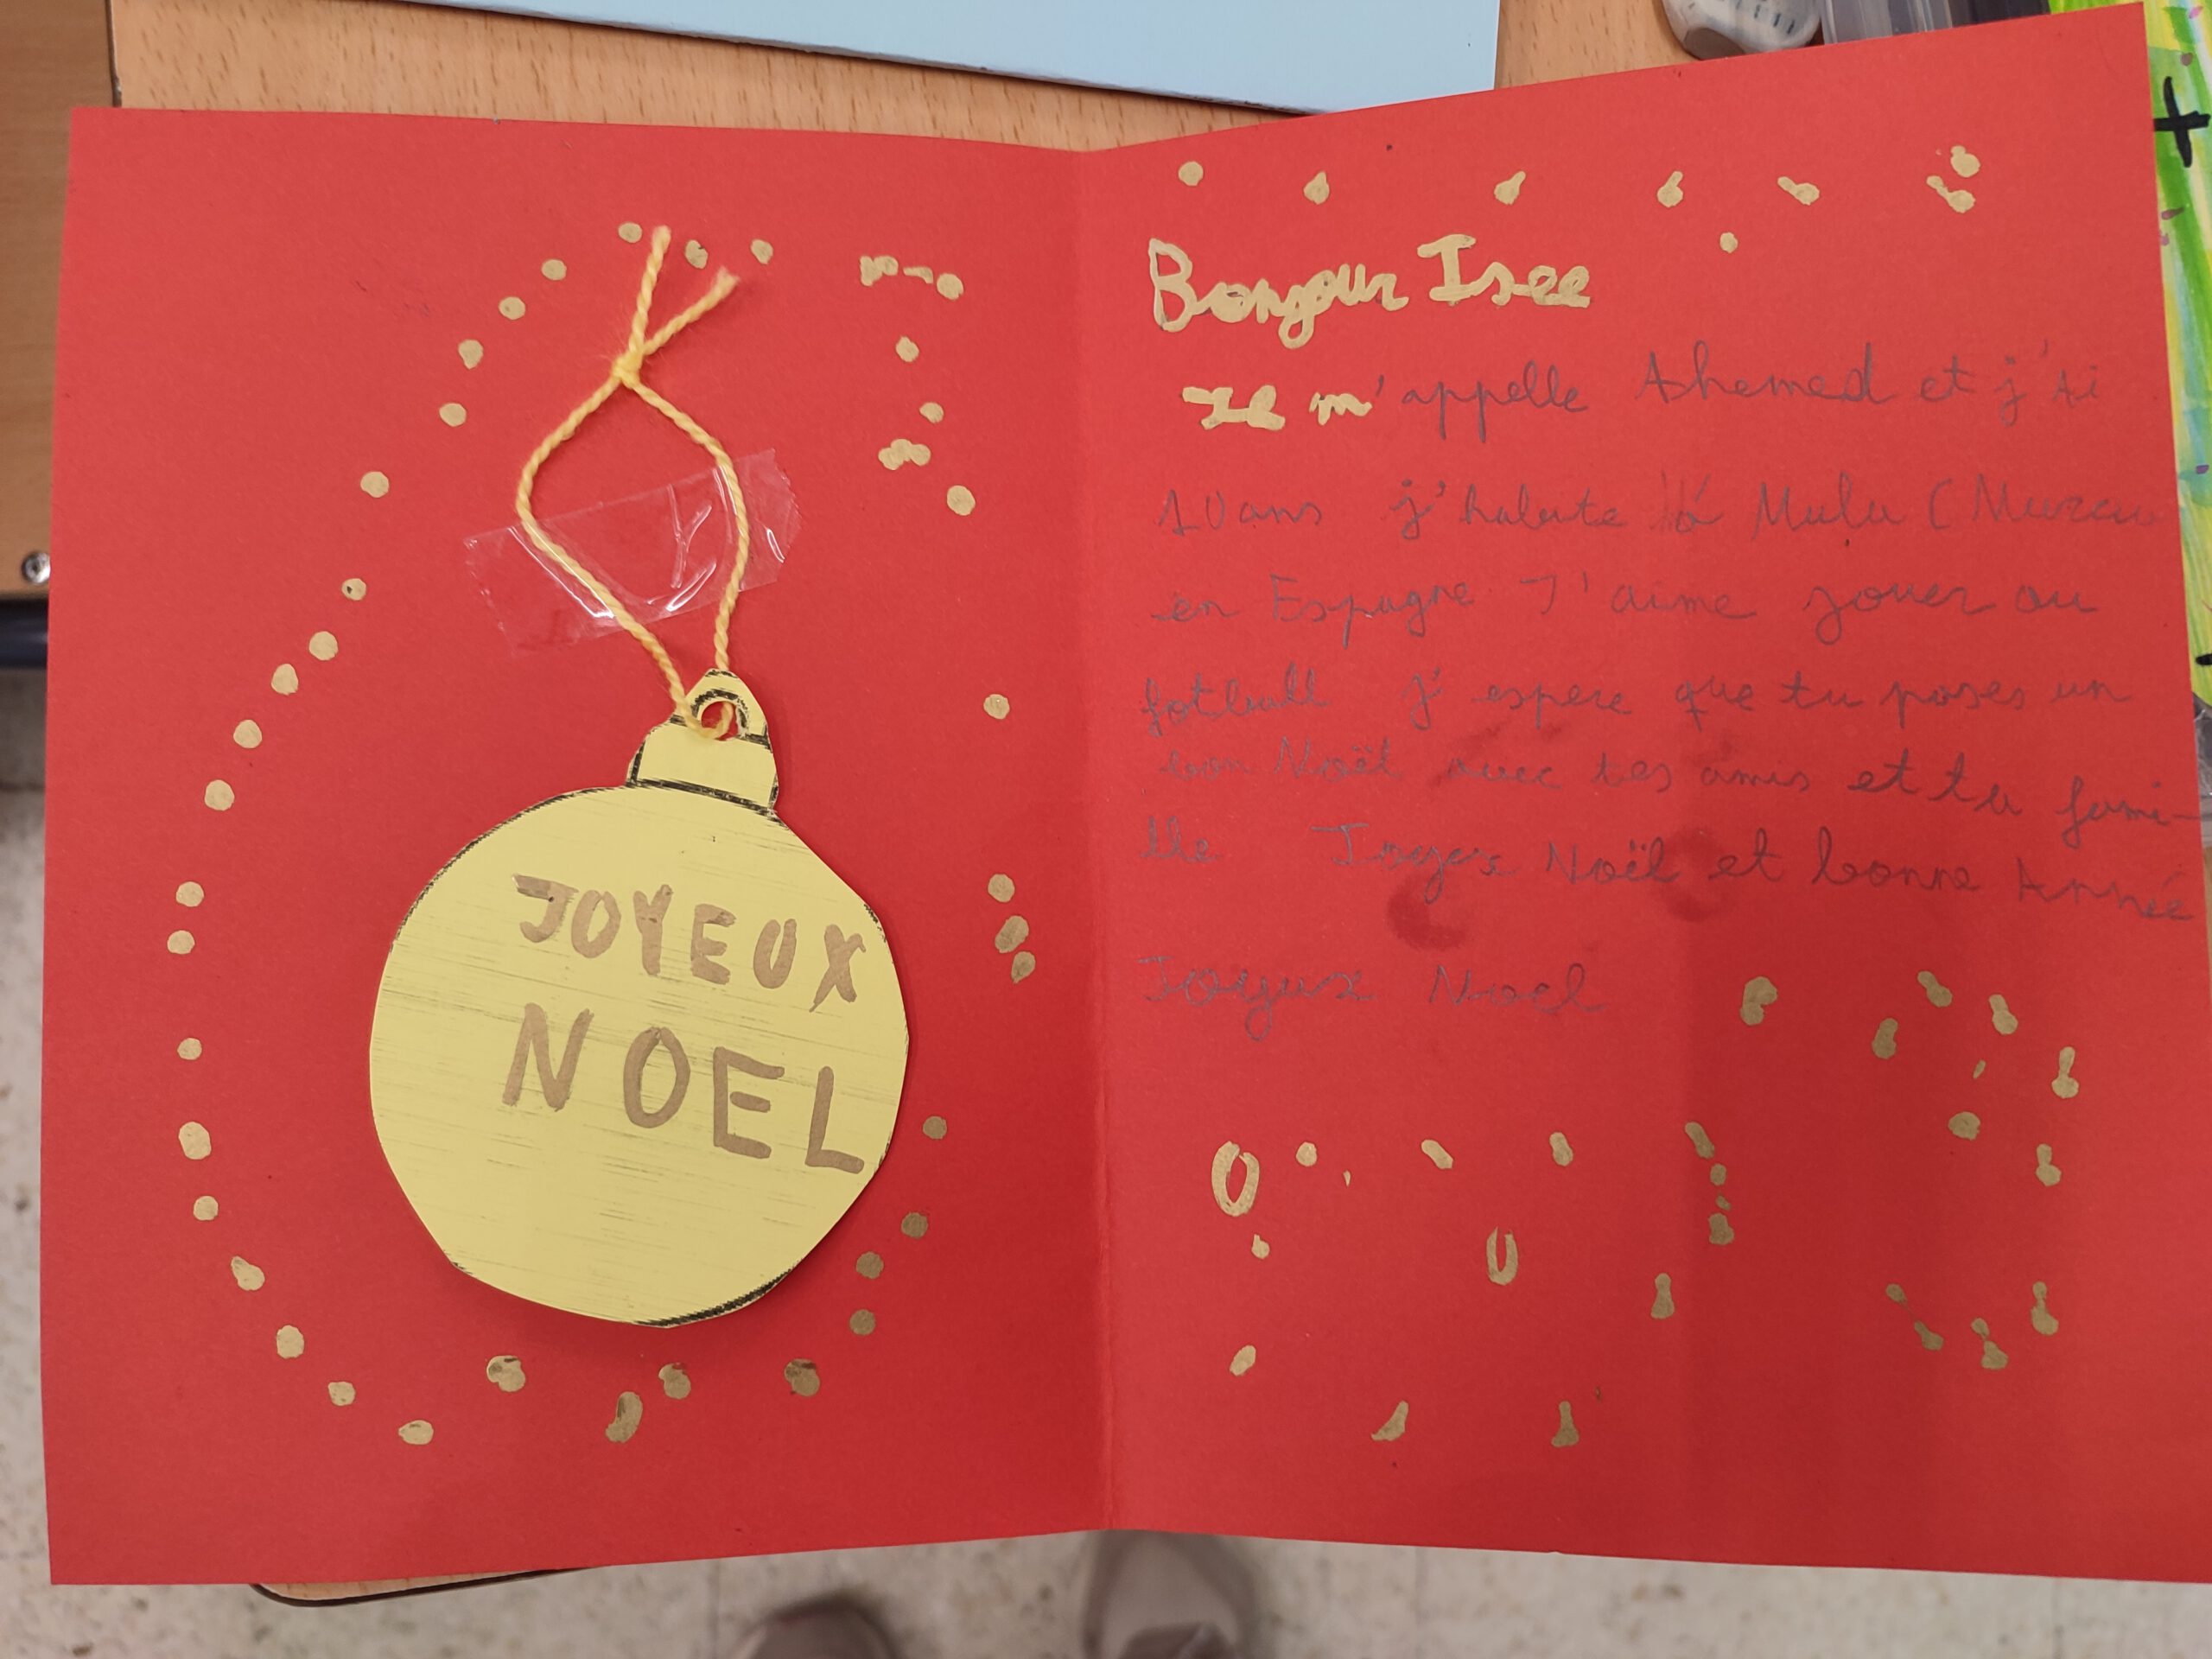 JOYEUX
NOEL
Bonjour Isee
Je m'appelle Ahemed et j'ai
10 ans j'habite à Mula (Murcia
en Espagne J'aime jouer au
fotball j'espere que tu poses un
bon Noël avec tes amis et ta fami-
lle Joyex Noël et bonne Année
Joyeux Noel